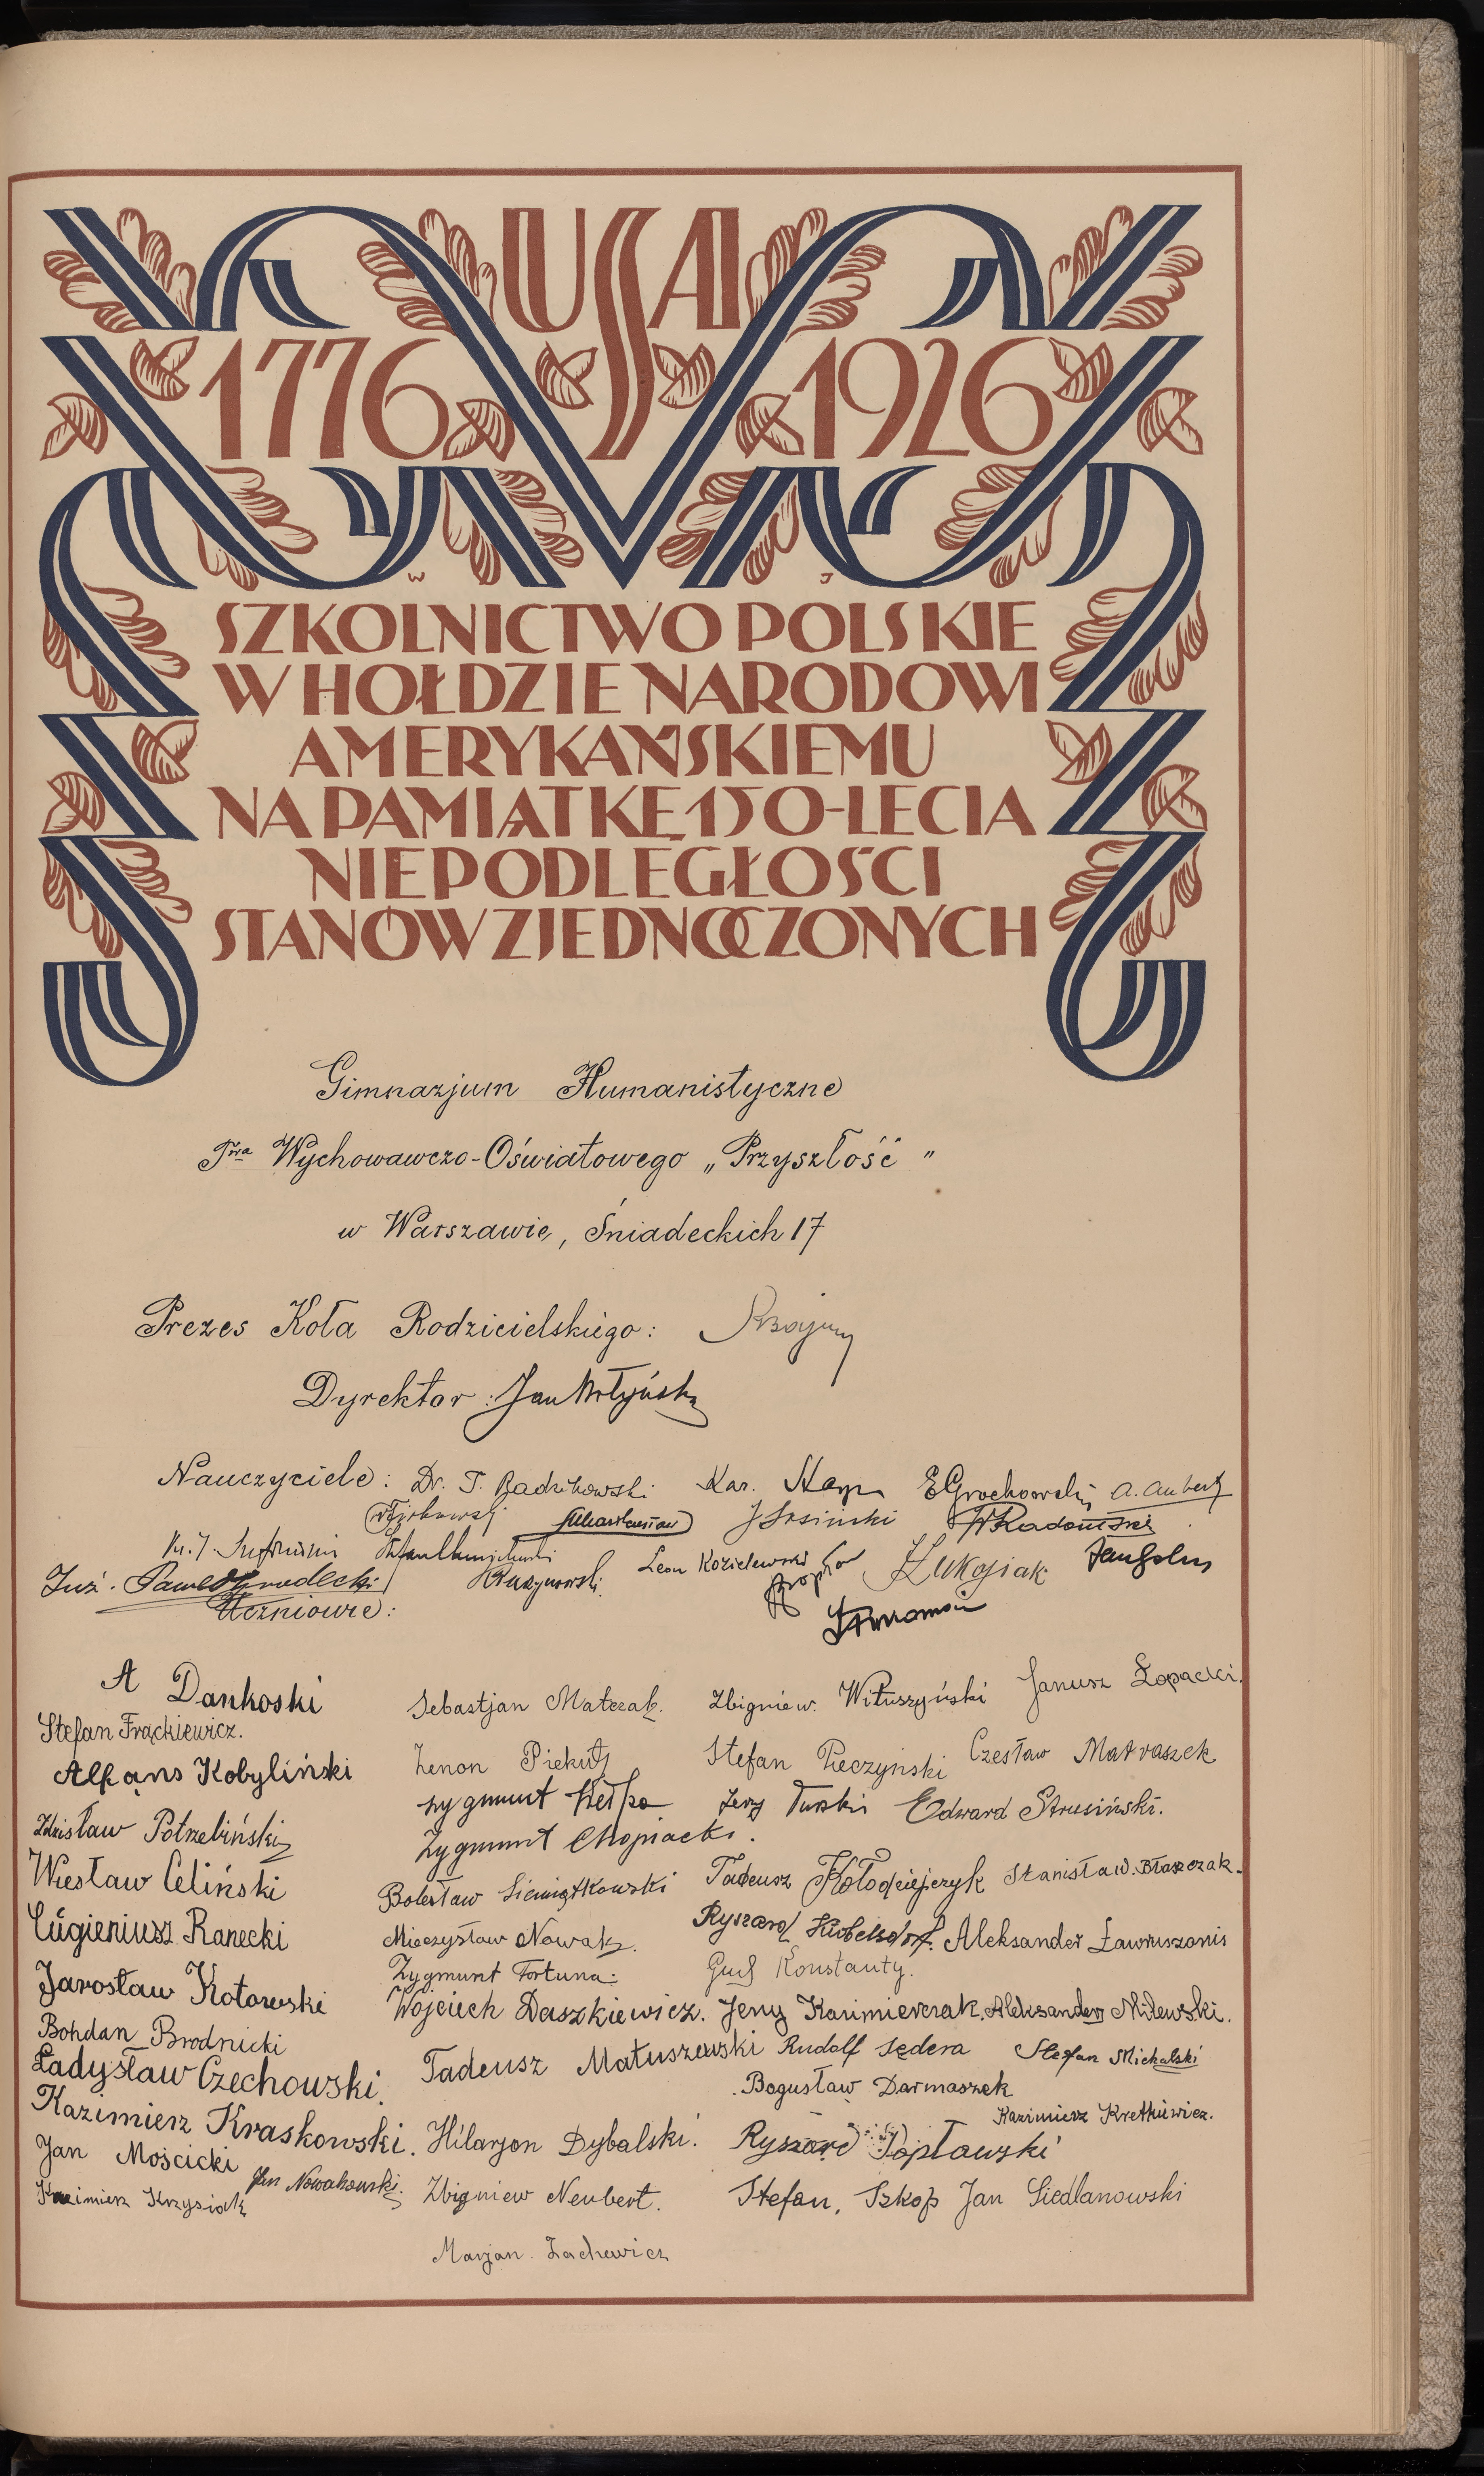 USA
1776 1926
W J
SZKOLNICTWO POLSKIE
W HOŁDZIE NARODOWI
AMERYKAŃSKIEMU
NA PAMIĄTKĘ 150-LECIA
NIEPODLEGŁOŚCI
STANÓW ZJEDNOCZONYCH
Gimnazjum Humanistyczne
Twa Wychowawczo-Oświatowego „Przyszłość"
w Warszawie, Śniadeckich 17
Prezes Koła Rodzicielskiego:
Dyrektor: Jan Wołyński
Nauczyciele: Dr. T. Radzikowski E Grochowski
J Sosiński W Radomski
Leon Kozielewski
Inż. Paweł Grudecki
Uczniowie:
A Dankoski
Sebastjan Matczak. Zbigniew. Wituszyński Janusz Łopacki.
Stefan Frąckiewicz.
Zenon Piekut Stefan Pieczyński Czesław Matraszek
Alfons Kobyliński
Zygmunt Jerzy Turski Edward Strusiński.
Zdzisław Potrzebiński
Zygmunt Chopiacki.
Wiesław Celiński
Bolesław Siemiątkowski Tadeusz Kołodziejczyk Stanisław. Błaszczak.
Eugieniusz Ranecki
Mieczysław Nowak. Ryszard Aleksander Ławruszonis
Zygmunt Fortuna. Konstanty.
Jarosław Kotowski
Wojciech Daszkiewicz. Jerzy Kazimierczak. Aleksander Milewski.
Bohdan Brodnicki
Tadeusz Matuszewski Rudolf Sędera Stefan Michalski
Ładysław Czechowski.
Bogusław Darmaszek
Kazimierz Kraskowski.
Kazimierz Kretkiewicz.
Jan Mościcki
Hilarjon Dybalski. Ryszard Popławski
Jan Nowakowski.
Kazimierz Krzysiak
Zbigniew Neubert. Stefan, Szkop Jan Siedlanowski
Marjan. Zachewicz